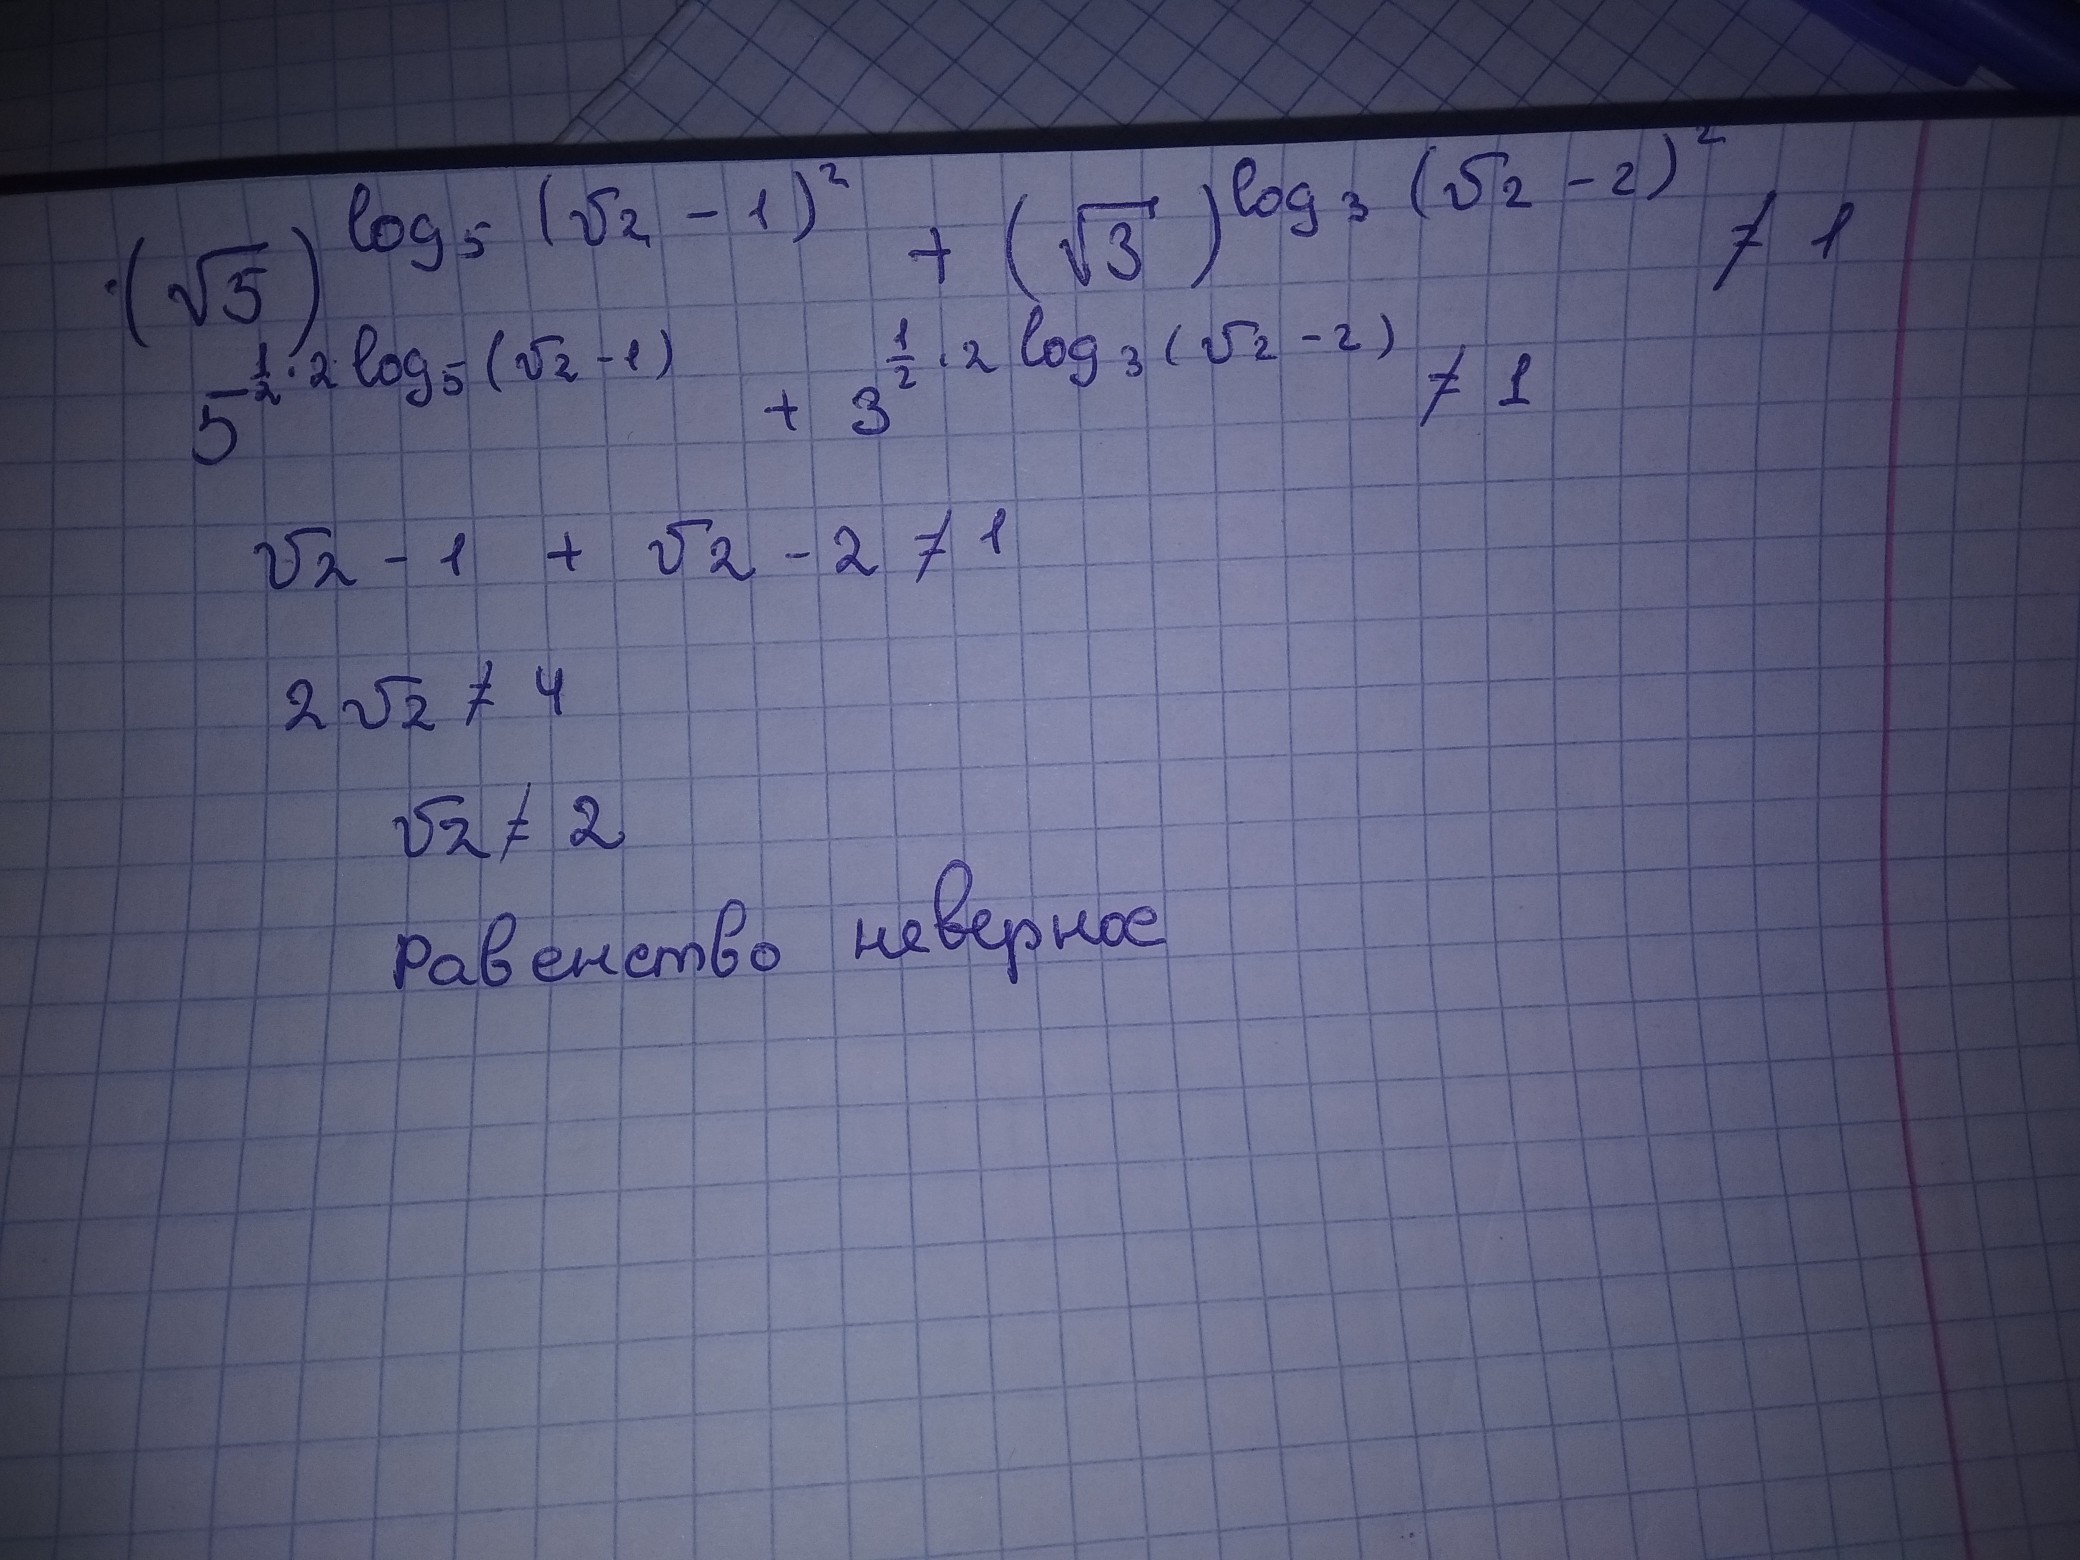 (√5)^log₅(√2 - 1)² + (√3)^log₃(√2 - 2)² ≠ 1
5^½·2 log₅(√2 - 1) + 3^½·2 log₃(√2 - 2) ≠ 1
√2 - 1 + √2 - 2 ≠ 1
2√2 ≠ 4
√2 ≠ 2
Равенство неверное